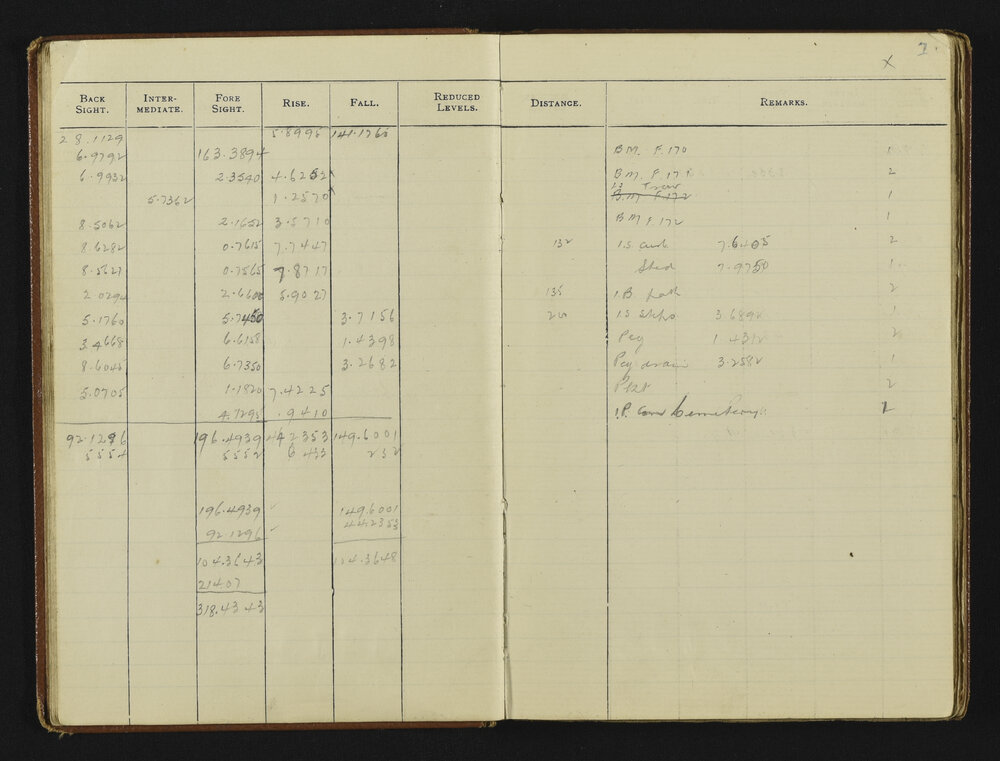 X 7.
BACK SIGHT. INTER-MEDIATE. FORE SIGHT. RISE. FALL. REDUCED LEVELS. DISTANCE. REMARKS.
28.1129 5.8995 141.1765
6.9792 163.3894 B.M. F.170 1
6.9932 2.3540 4.6252 B.M. F.171 2
5.7362 1.2570 B.M. F.172 1
8.5062 2.1652 3.5710 B.M F.172 1
8.6282 0.7615 7.7447 132 7.6405 2
8.5627 0.7565 7.8717 7.9750 1
2.0294 2.6600 5.9027 135 1.B. path 2
5.1760 5.7450 3.7156 1S Steps 3.6892 1
3.4668 6.6158 1.4398 Peg 1.4312 2
8.6045 6.7350 3.2682 Peg drain 3.2582 1
5.0705 1.1820 7.4225 2
4.7295 .9410 1
92.1296 196.4939 442353 149.6001
5554 5552 6433 232
196.4939 149.6001
92.1296 44.2353
104.3643 104.3648
21407
318.4343